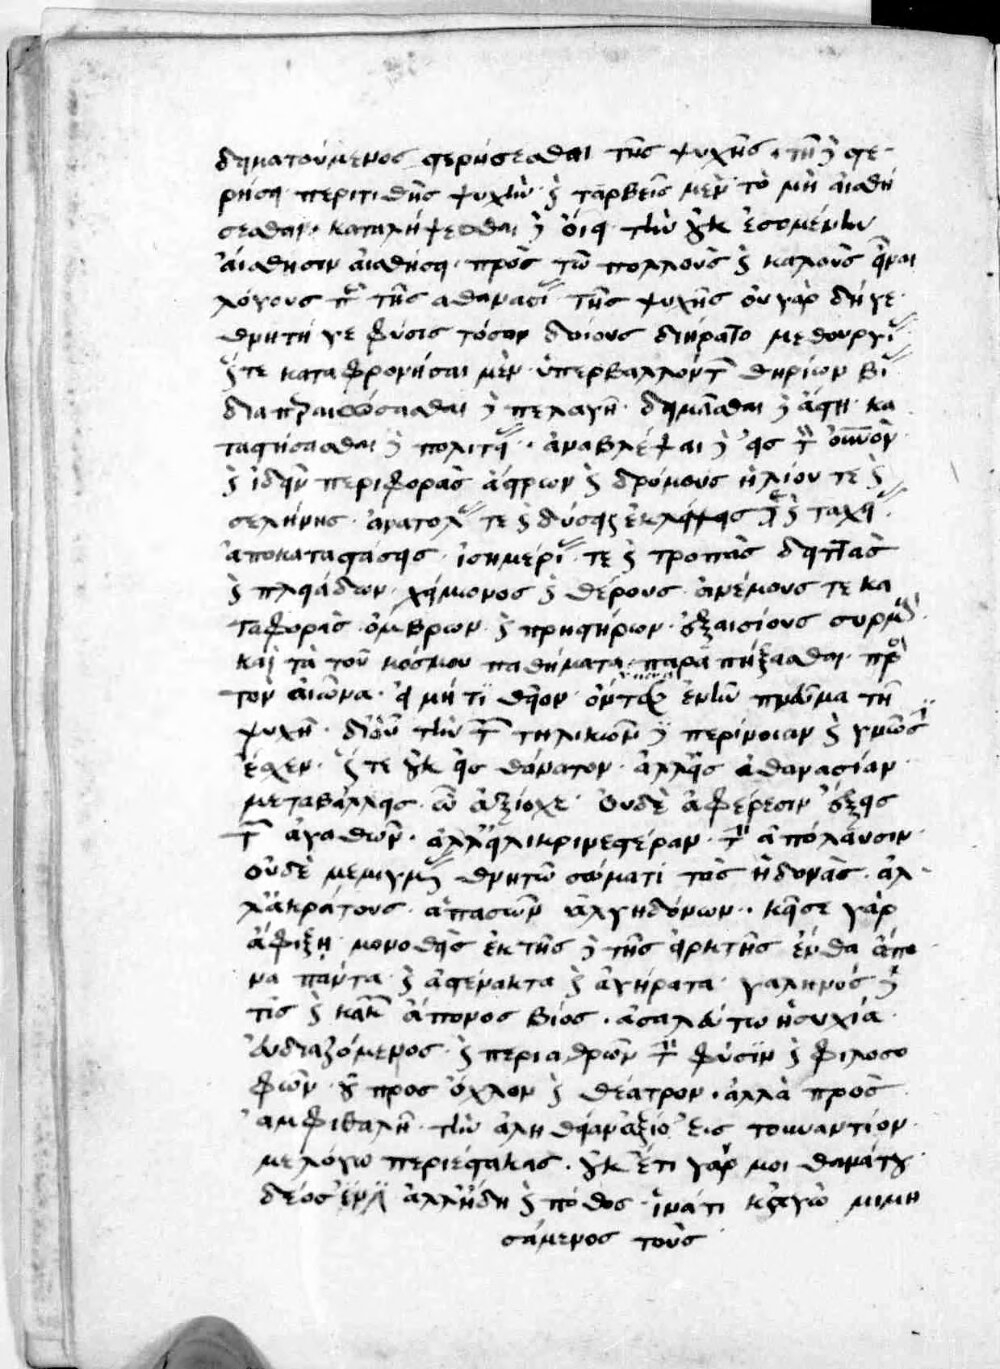 δειματούμενος στερήσεσθαι τῆς ψυχῆς. τῆ δὲ στε
ρήσει περιτιθεὶς ψυχὴν. καὶ ταρβεῖς μὲν τὸ μὴ αἰσθή
σεσθαι. καταλήψεσθαι δὲ οἴει τὴν οὐκ ἐσομένην
αἴσθησιν αἰσθήσει. πρὸς τῶ πολλοὺς καὶ καλοὺς εἶναι
λόγους περὶ τῆς ἀθανασίας τῆς ψυχῆς οὐ γὰρ δή γε
θνητή γε φύσις τόσον δ οιους διήρατο μεθουργίας
ὥστε καταφρονῆσαι μὲν ὑπερβαλλόντων θηρίων βίας
διαπεραιώσασθαι δὲ πελάγη. δείμασθαι δὲ ἄστη. κα
ταστήσασθαι δὲ πολιτείας. ἀναβλέψαι δὲ εἰς τὸν οὐρανὸν
καὶ ἰδεῖν περιφορὰς ἄστρων καὶ δρόμους ἡλίου τε καὶ
σελήνης. ἀνατολάς τε καὶ δύσεις ἐκλείψεις τε καὶ ταχείας
ἀποκαταστάσεις. ἰσημερίας τε καὶ τροπὰς διττὰς
καὶ πλειάδων. χειμῶνος καὶ θέρους ἀνέμους τε κα
ταφορὰς ὄμβρων καὶ πρηστήρων ἐξαισίους συρμούς.
καὶ τὰ τοῦ κόσμου παθήματα. παραπήξασθαι πρὸς
τὸν αἰῶνα. εἰ μή τι θεῖον ὄντως ἐνῆν πνεῦμα τῆ
ψυχῆ. δι' οὗ τὴν τῶν τηλικῶνδε περίνοιαν καὶ γνῶσιν
ἔσχεν. ὥστε οὐκ εἰς θάνατον ἀλλ' εἰς ἀθανασίαν
μεταβάλλεις ὦ ἀξίοχε. οὐδὲ ἀφαίρεσιν ἕξεις
τῶν ἀγαθῶν. ἀλλ' εἰλικρινεστέραν τὴν ἀπόλαυσιν.
οὐδὲ μεμιγμένας θνητῶ σώματι τὰς ἡδονὰς. ἀλ
λ' ἀκράτους ἁπασῶν ἀλγηδόνων. κεῖσε γὰρ
ἀφίξῃ μονωθεὶς ἐκ τῆσδε τῆς εἱρκτῆς ἔνθα ἄπο
να πάντα καὶ ἀστένακτα καὶ ἀγήρατα. γαληνὸς δέ
τις καὶ κακῶν ἄπονος βίος. ἀσαλεύτω ἡσυχία
εὐδιαζόμενος. καὶ περιαθρῶν τὴν φύσιν καὶ φιλοσο
φῶν οὐ πρὸς ὄχλον καὶ θέατρον. ἀλλὰ πρὸς
ἀμφιθαλῆ τὴν ἀλήθειαν ἀξίο εἰς τοὐναντίον
με λόγω περιέστακας. οὐκ ἔτι γάρ μοι θανάτου
δέος ἔνεστι ἀλλ' ἤδη καὶ πόθος ἵνα τι κἀγὼ μιμη
σάμενος τοὺς